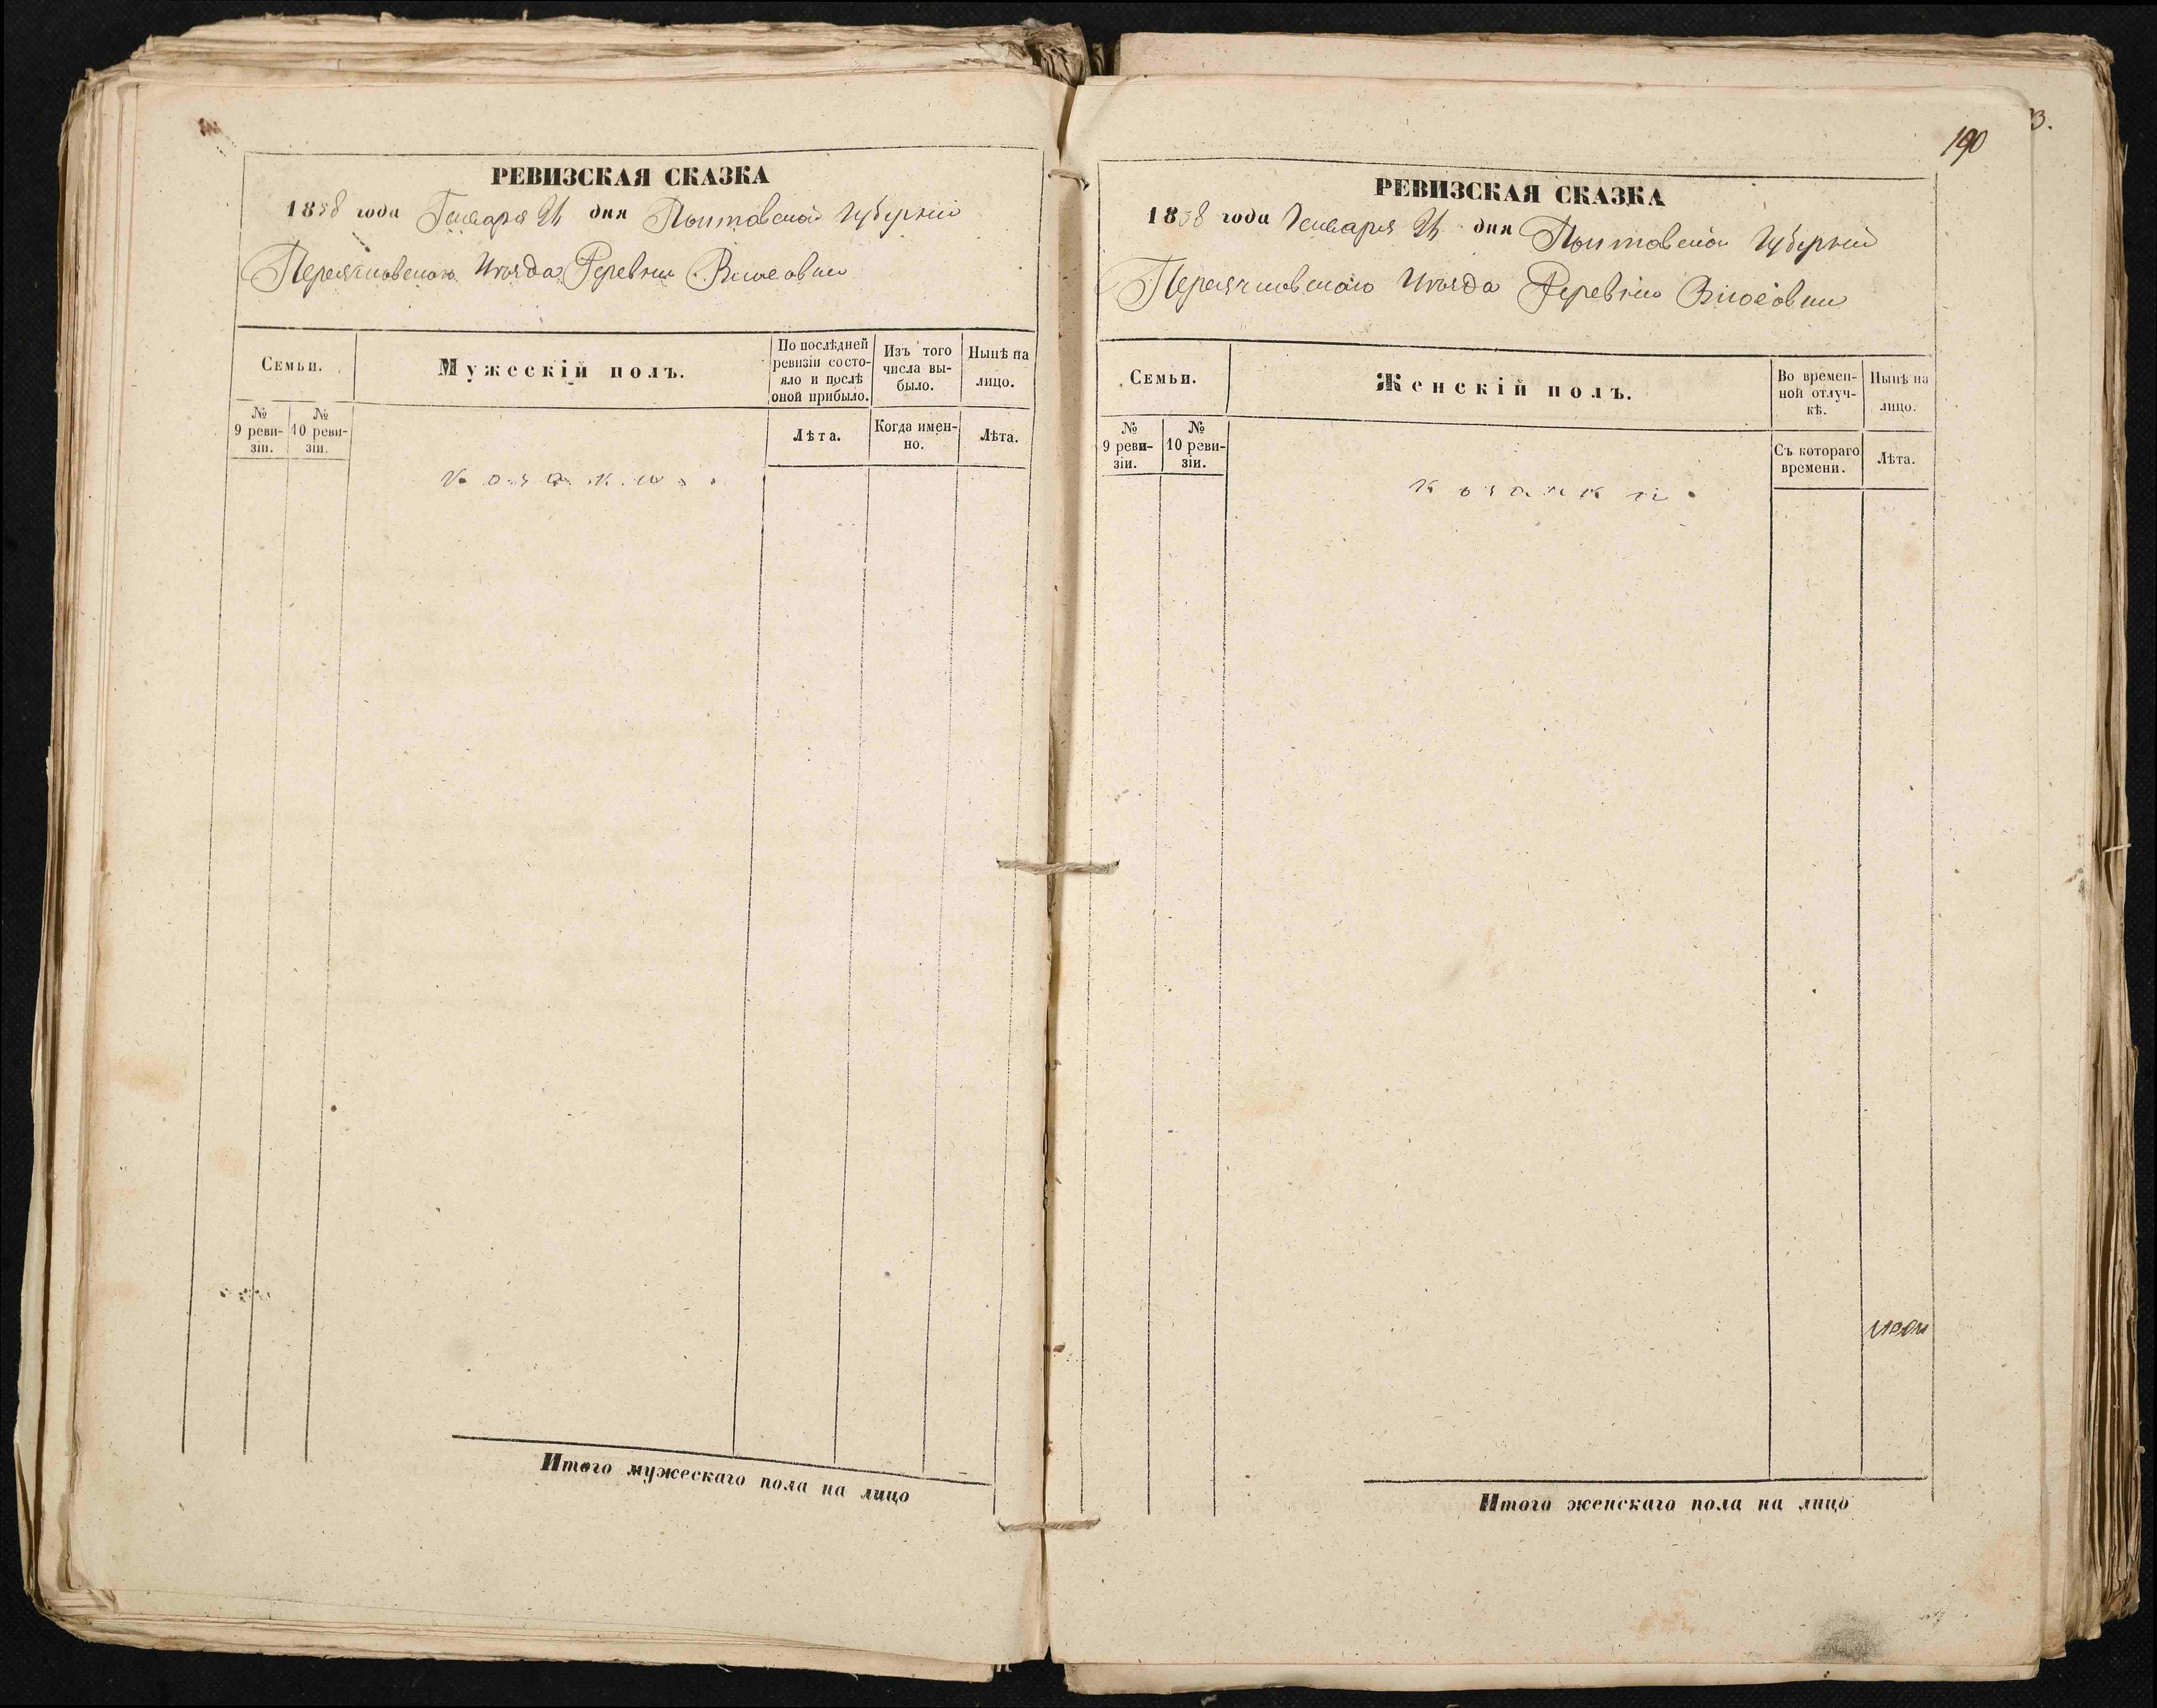 РЕВИЗСКАЯ СКАЗКА
1858 года Генваря 21 дня Полтавской Губерніи
Переяславского Уѣзда Деревни
Семьи.
Мужескій полъ.
По послѣдней ревизіи состо-
яло и послѣ
оной прибыло.
Изъ того
числа вы-
было.
Нынѣ на
лицо.
№
9 реви-
зіи.
№
10 реви-
зіи.
Лѣта.
Когда имен-
но.
Лѣта.
Козаки
Итого мужескаго пола на лицо
190
3.
РЕВИЗСКАЯ СКАЗКА
1858 года Генваря 21 дня Полтавской Губерніи
Переяславского Уѣзда Деревни
Семьи.
Женскій полъ.
Во времен-
ной отлуч-
кѣ.
Нынѣ на
лицо.
№
9 реви-
зіи.
№
10 реви-
зіи.
Съ котораго
времени.
Лѣта.
Козачки
Итого женскаго пола на лицо